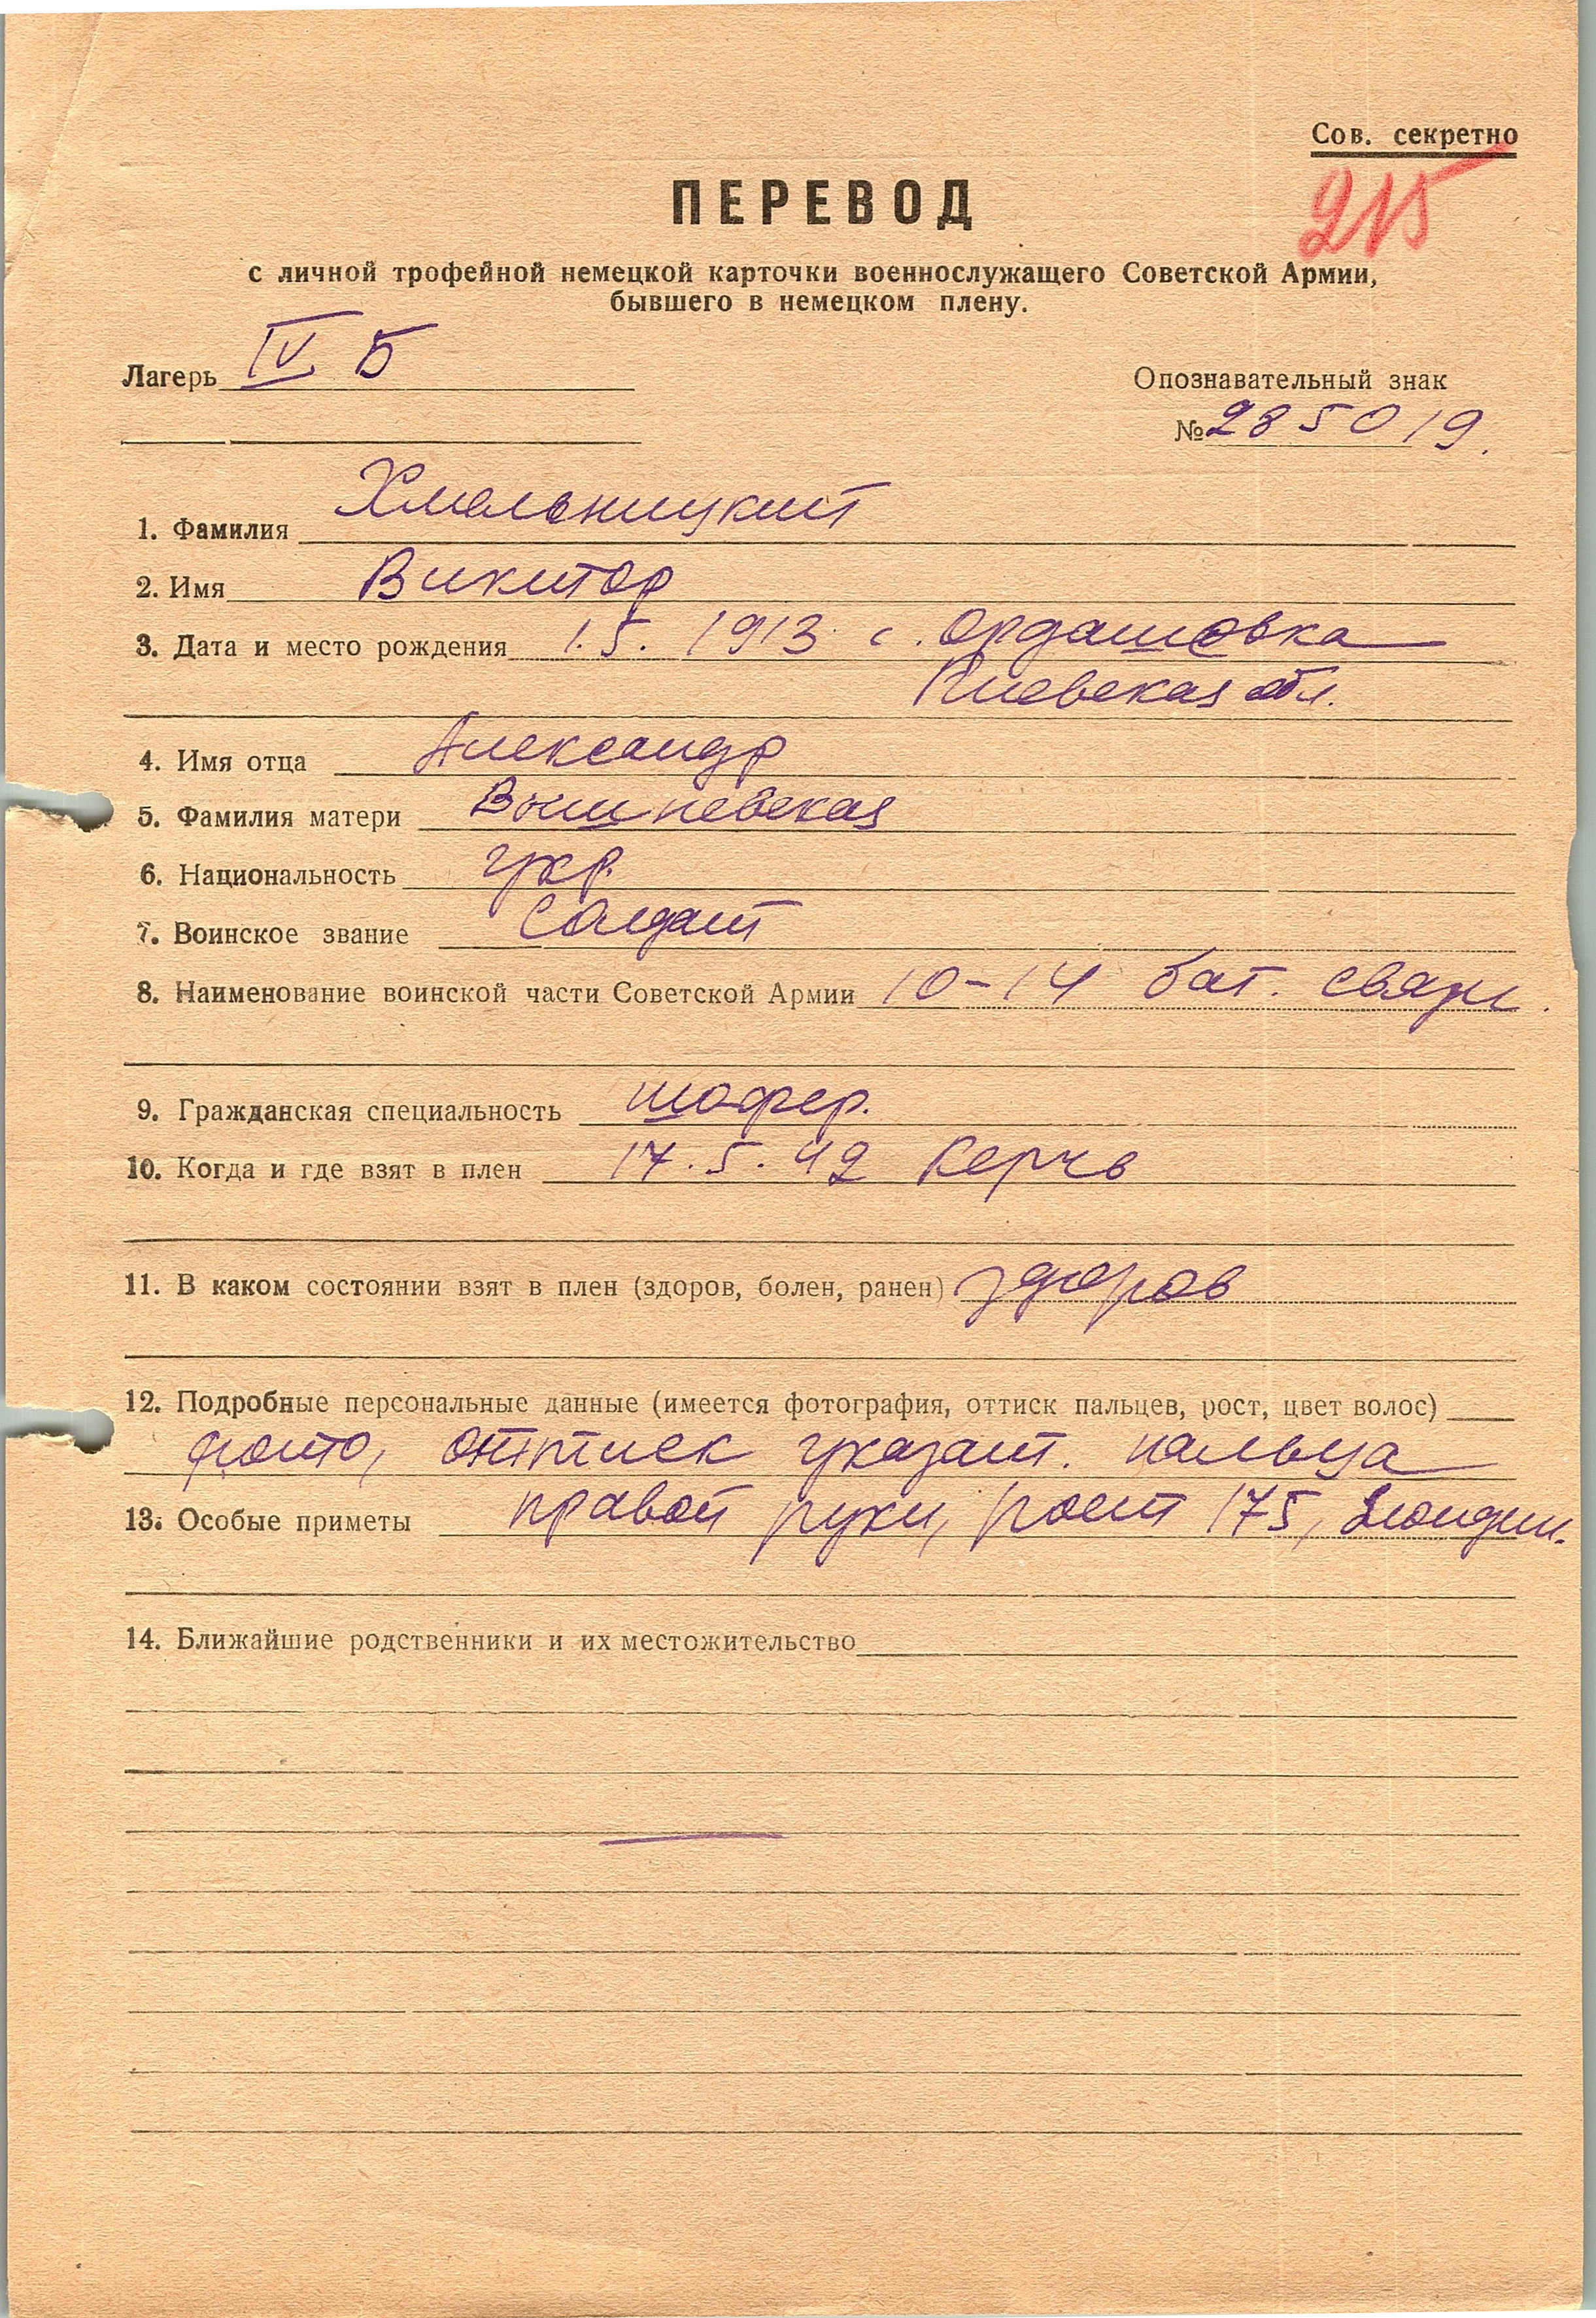 Сов. секретно
215
ПЕРЕВОД
с личной трофейной немецкой карточки военнослужащего Советской Армии,
бывшего в немецком плену.
Лагерь IV Б
Опознавательный знак
№ 285019.
1. Фамилия Хмельницкий
2. Имя Виктор
3. Дата и место рождения 1.5. 1913 с. Ордашовка
Киевская обл.
4. Имя отца Александр
5. Фамилия матери Вышневская
6. Национальность укр.
7. Воинское звание Солдат
8. Наименование воинской части Советской Армии 10-14 бат. связи.
9. Гражданская специальность шофер.
10. Когда и где взят в плен 17.5.42 Керчь
11. В каком состоянии взят в плен (здоров, болен, ранен) здоров
12. Подробные персональные данные (имеется фотография, оттиск пальцев, рост, цвет волос)
фото, оттиск указат. пальца
13. Особые приметы правой руки, рост 175,
14. Ближайшие родственники и их местожительство